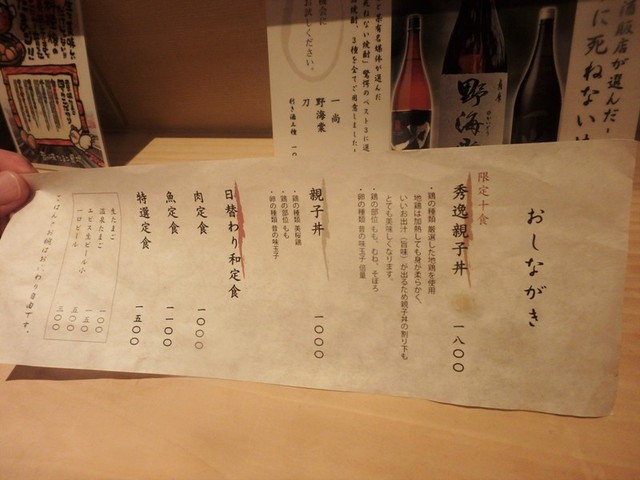 おしながき
限定十食
秀逸親子丼 一八〇〇
・鶏の種類 厳選した地鶏を使用
地鶏は加熱しても身が柔らかく、
いいお出汁（旨味）が出るため親子丼の割り下も
とても美味しくなります。
・鶏の部位 もも、むね、そぼろ
・卵の種類 昔の味玉子 倍量
親子丼 一〇〇〇
・鶏の種類 美桜鶏
・鶏の部位 もも
・卵の種類 昔の味玉子
日替わり和定食
肉定食 一〇〇〇
魚定食 一一〇〇
特選定食 一五〇〇
生たまご 一〇〇
温泉たまご 一五〇
ヱビス生ビール小 五〇〇
一口ビール 三〇〇
ごはんとお椀はおかわり自由です。
酒販店が選んだ
に死ねない
野海棠
一尚
野海棠
刀
お試しください。